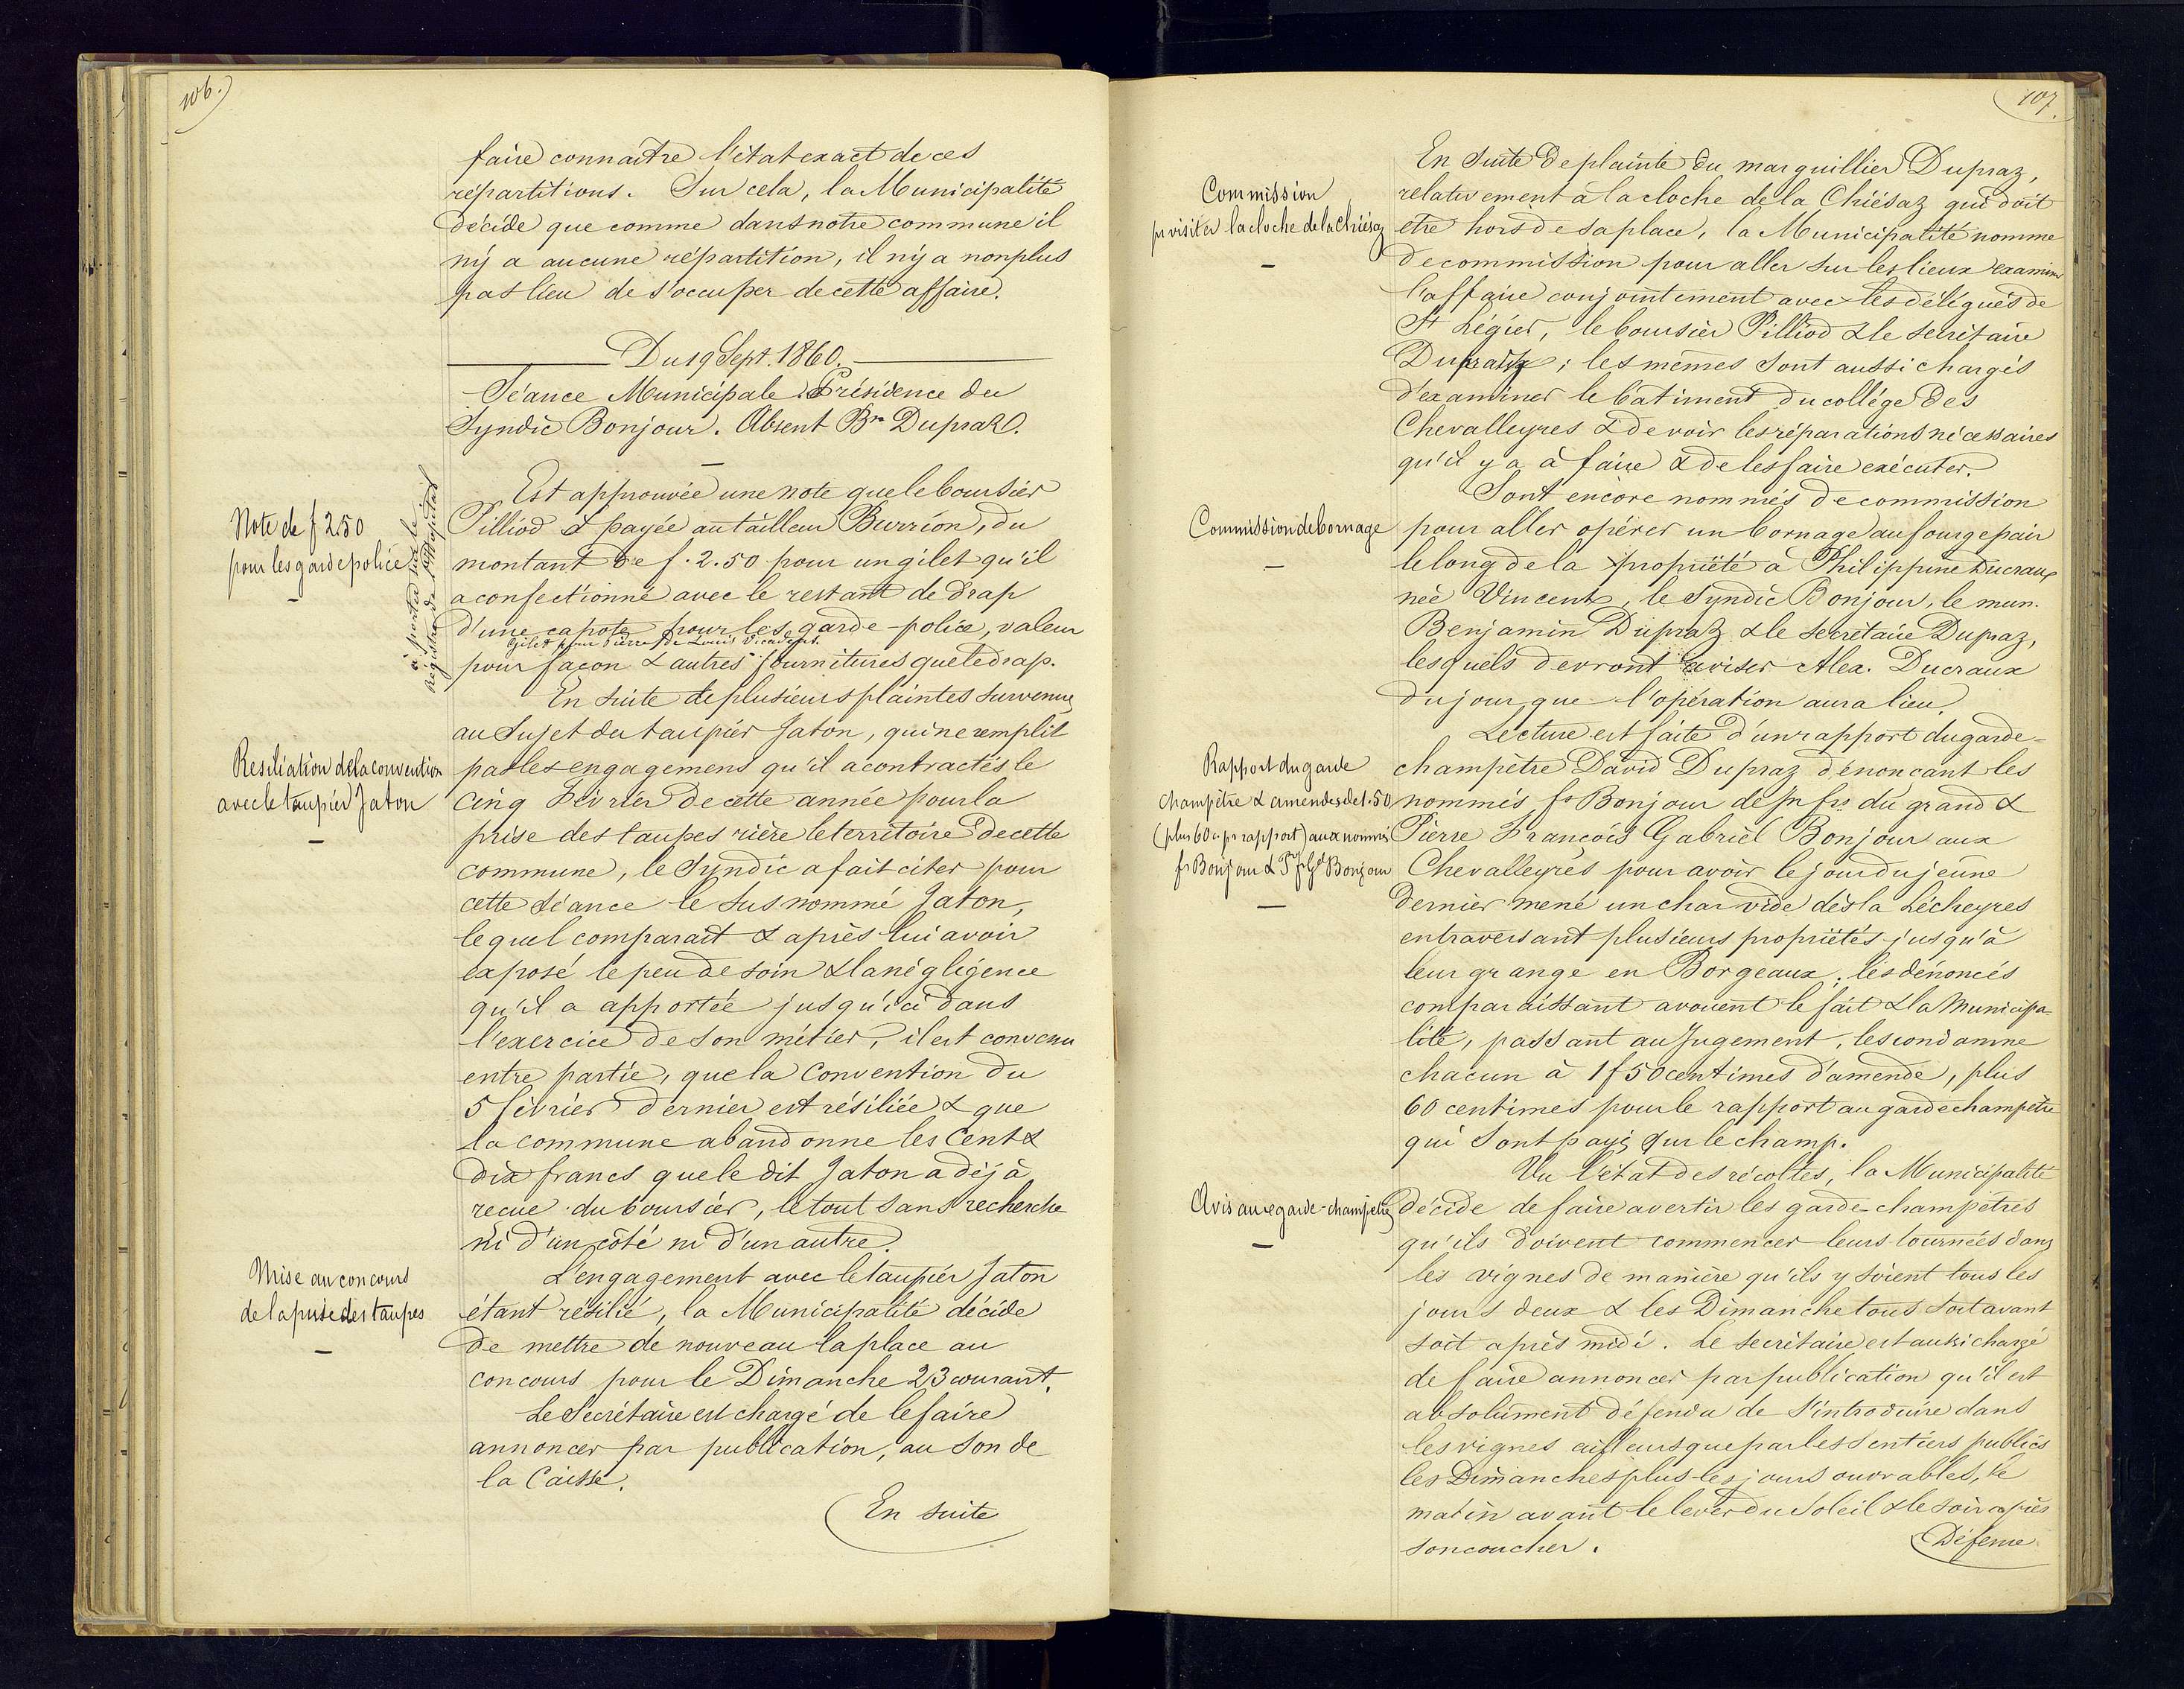 106.)
faire connaître l'état exact de ces
répartitions. Sur cela, la Municipalité
décide que comme dans notre commune il
n'y a aucune répartition, il n'y a non plus
pas lieu de s'occuper de cette affaire.
Du 19 Sept. 1860.
Séance Municipale. Présidence du
Syndic Bonjour. Absent Bn Dupraz.
Note de f 2.50
pour les garde police
à porter sur le
Régistre de l'Hopital
Est approuvée une note que le boursier
Pilliod a payée au tailleur Burrion, du
montant de f. 2.50 pour un gilet qu'il
a confectionné avec le restant de drap
d'une capote pour les garde-police, valeur
Gilet pour Pierre de Louis
pour façon & autres fournitures que le drap.
En suite de plusieurs plaintes survenues
au sujet du taupier Jaton, qui ne remplit
Resiliation de la convention
avec le taupier Jaton
pas les engagemens qu'il a contractés le
Cinq Février de cette année pour la
prise des taupes rière le territoire de cette
commune, le Syndic a fait citer pour
cette séance le sus nommé Jaton,
lequel comparait & après lui avoir
exposé le peu de soin & la négligence
qu'il a apportée jusqu'ici dans
l'exercice de son métier, il est convenu
entre partie, que la Convention du
5 février dernier est résiliée & que
la commune abandonne les Cent &
dix francs que le dit Jaton a déjà
reçue du boursier, le tout sans recherche
ni d'un côté ni d'un autre.
Mise au concours
de la prise des taupes
L'engagement avec le taupier Jaton
étant résilié, la Municipalité décide
de mettre de nouveau la place au
concours pour le Dimanche 23 courant.
Le Secrétaire est chargé de le faire
annoncer par publication, au son de
la Caisse.
En suite
107.
Commission
pr visiter la cloche de la Chiésaz
En suite de plainte du marguillier Dupraz,
relativement à la cloche de la Chiésaz qui doit
etre hors de sa place, la Municipalité nomme
de commission pour aller sur les lieux examiner
l'affaire conjointement avec les délégués de
St Légier, le boursier Pilliod & le secrétaire
Dupraz; les mêmes sont aussi chargés
d'examiner le batiment du collége des
Chevalleyres & de voir les réparations nécessaires
qu'il y a à faire & de les faire exécuter.
Commission de bornage
Sont encore nommés de commission
pour aller opérer un bornage au four gepair
le long de la propriété à Philippine Ducraux
née Vincent, le Syndic Bonjour, le mun.
Benjamin Dupraz & le secrétaire Dupraz,
lesquels devront aviser Alex. Ducraux
du jour que l'opération aura lieu.
Rapport du garde
champêtre & amendes de 1.50
(plus 60 c. pr rapport) aux nommés
fs Bonjour & Pre fs Gel Bonjour
Lecture est faite d'un rapport du garde-
champêtre David Dupraz dénoncant les
nommés fs Bonjour de Jn fs du grand &
Pierre François Gabriel Bonjour aux
Chevalleyres pour avoir le jour du jeûne
dernier mené un char vide dès la Lécheyres
en traversant plusieurs propriétés jusqu'à
leur grange en Borgeaux; les dénoncés
comparaissant avouent le fait & la Municipa-
lité, passant au Jugement, les condamne
chacun à 1 f 50 centimes d'amende, plus
60 centimes pour le rapport au garde champêtre
qui sont payés sur le champ.
Avis aux garde-champetres
Vu l'état des récoltes, la Municipalité
décide de faire avertir les garde-champêtres
qu'ils doivent commencer leurs tournées dans
les vignes de manière qu'ils y soient tous les
jours deux & les Dimanche tous soit avant
soit après midi. Le secrétaire est aussi chargé
de faire annoncer par publication qu'il est
absolument défendu de s'introduire dans
les vignes ailleurs que par les sentiers publics
les Dimanches plus les jours ouvrables, le
matin avant le lever du Soleil & le soir après
son coucher.
Défense